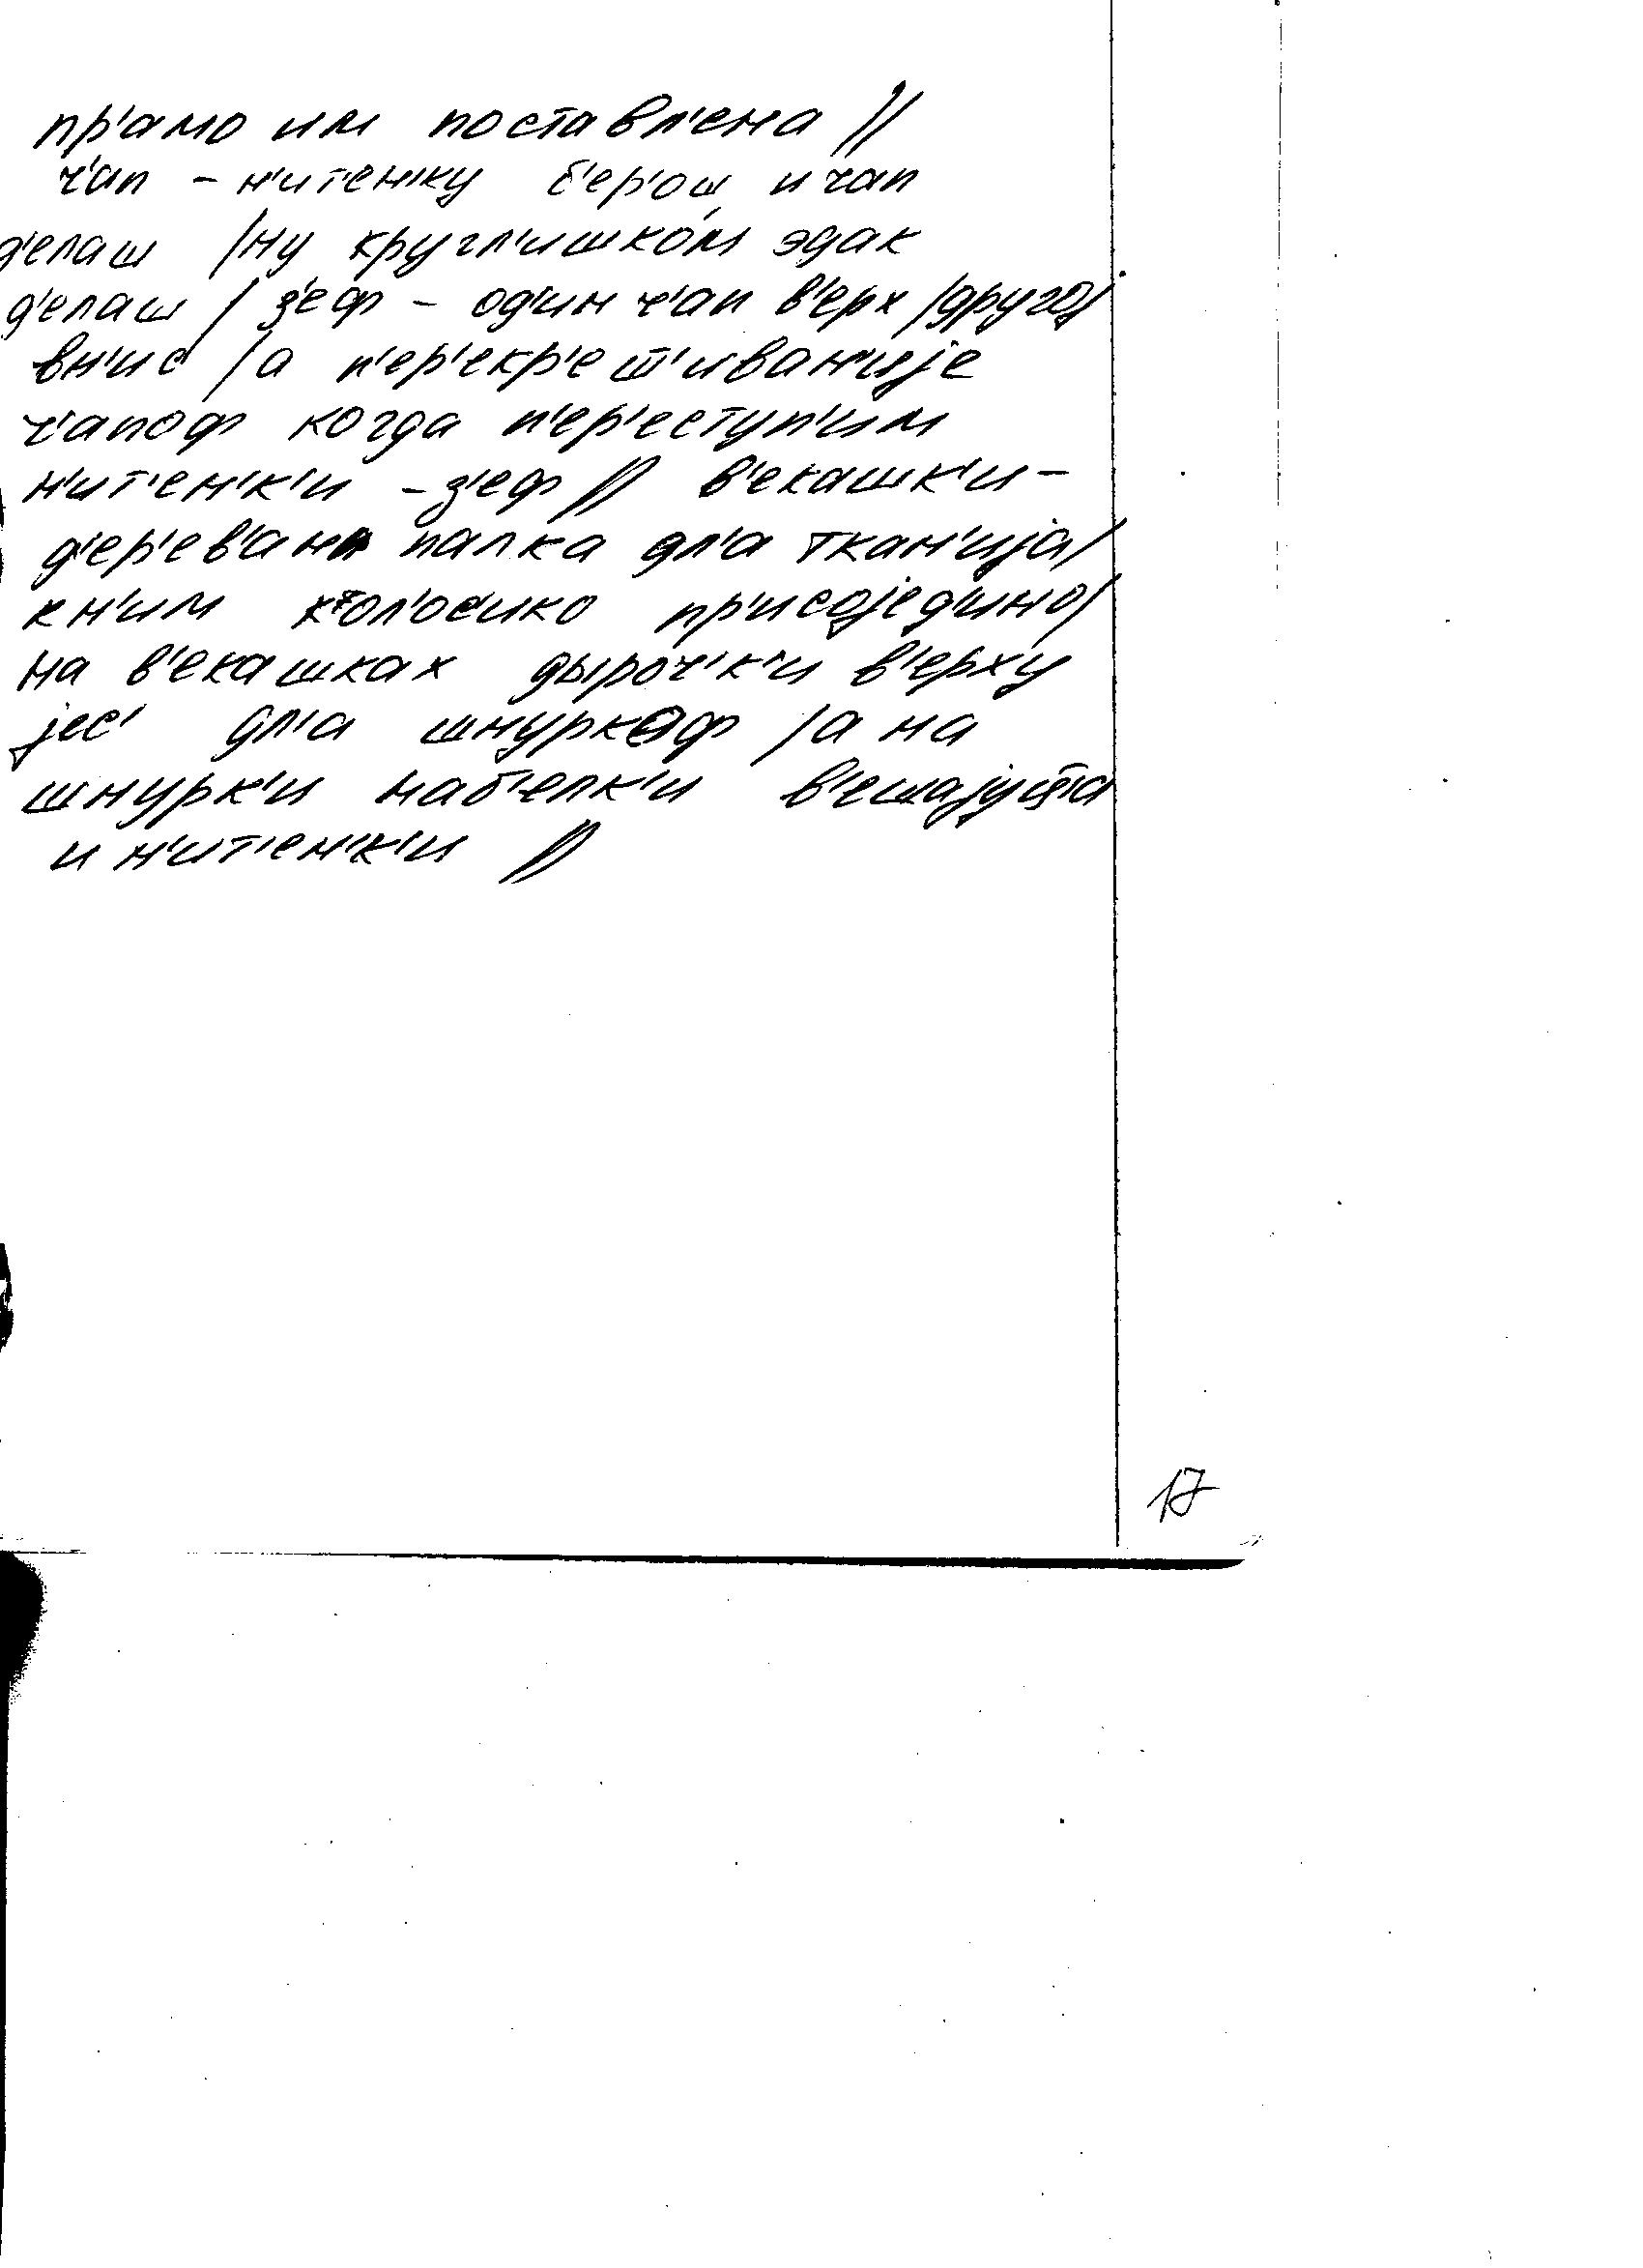 пр'амо им поставл'ена //
ч'ап – н'ит'ен'ку б'ер'ош и чап
д'елаш / ну кругл'ишко́м эдак
д'елаш / з'еф – од'ин ч'ап в'ерх / друго/
вн'ис / а п'ер'екр'ешт'иван'ије
ч'апоф когда п'ер'еступ'им
н'ит'ен'к'и – з'еф // в'екашк'и –
д'ер'ев'ана палка дл'а ткан'ија/
к н'им кол'ос'ико пр'исојед'ино/
на в'екашках дыроч'к'и в'ерху
јес' дл'а шнуркоф / а на
шнурк'и наб'елк'и в'ешајуц'а
и н'ит'ен'к'и //
17